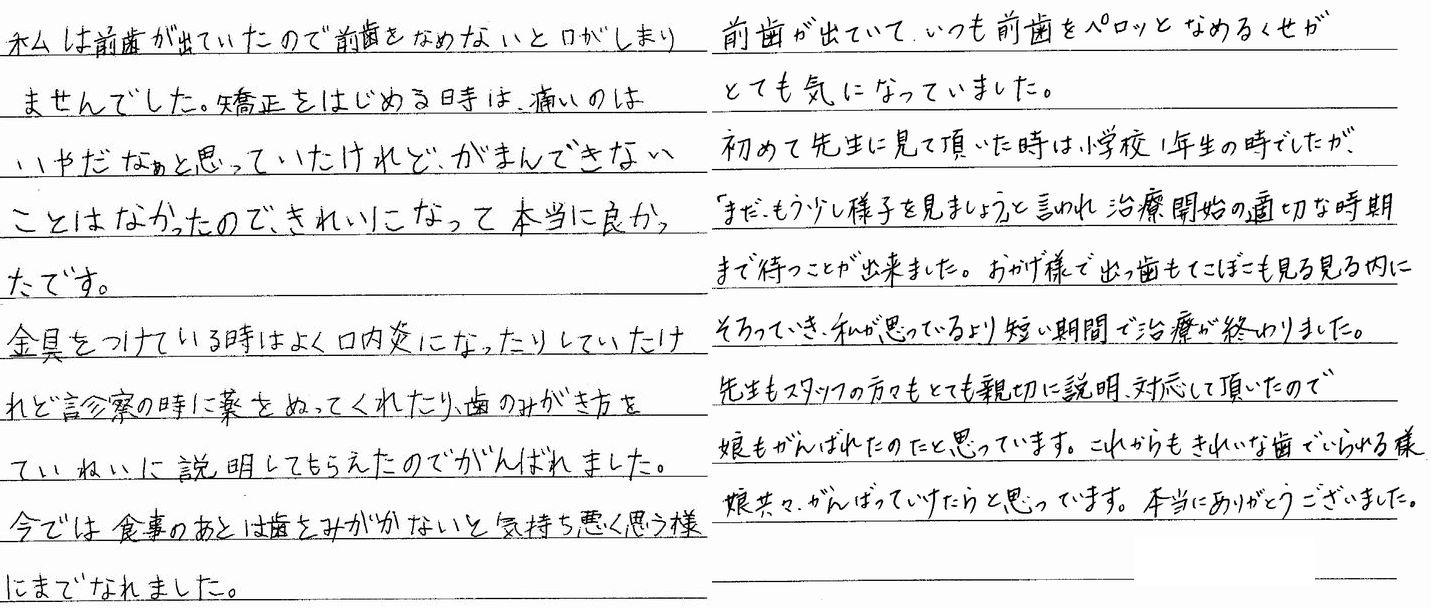 私は前歯が出ていたので前歯をなめないと口がしまり
ませんでした。矯正をはじめる時は、痛いのは
いやだなぁと思っていたけれど、がまんできない
ことはなかったので、きれいになって本当に良かっ
たです。
金具をつけている時はよく口内炎になったりしていたけ
れど診察の時に薬をぬってくれたり、歯のみがき方を
ていねいに説明してもらえたのでがんばれました。
今では食事のあとは歯をみがかないと気持ち悪く思う様
にまでなれました。
前歯が出ていて、いつも前歯をペロッとなめるくせが
とても気になっていました。
初めて先生に見て頂いた時は小学校1年生の時でしたが、
「まだ、もう少し様子を見ましょう」と言われ治療開始の適切な時期
まで待つことが出来ました。おかげ様で出っ歯もでこぼこも見る見る内に
そろっていき、私が思っているより短い期間で治療が終わりました。
先生もスタッフの方々もとても親切に説明、対応して頂いたので
娘もがんばれたのだと思っています。これからもきれいな歯でいられる様
娘共々、がんばっていけたらと思っています。本当にありがとうございました。